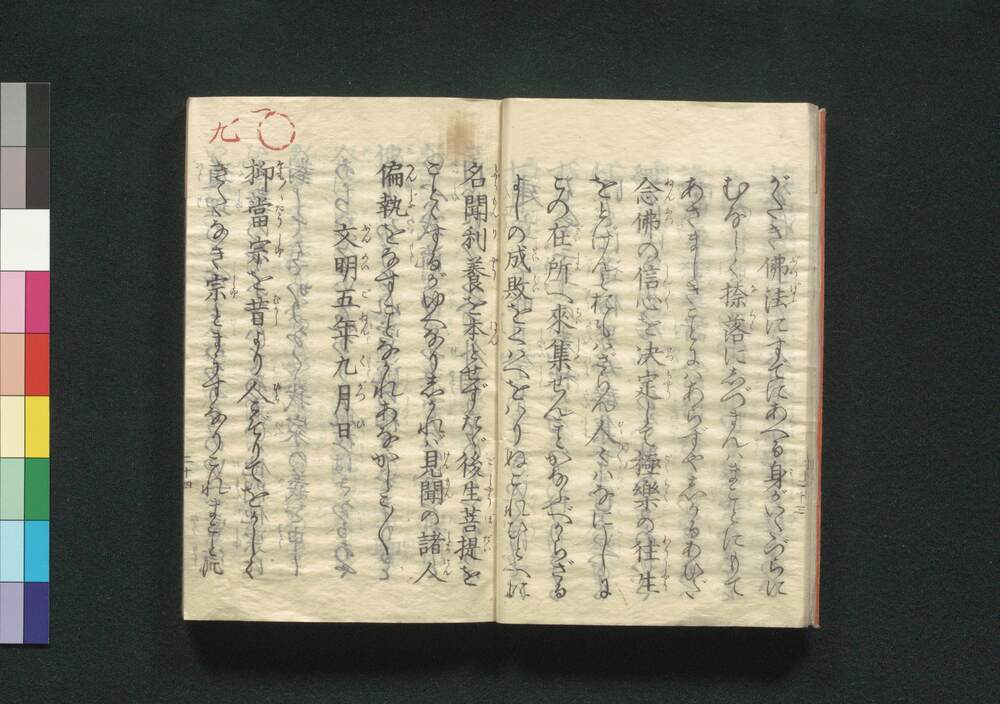 がたき佛法にすでにあへる身がいたづらに
むなしく捺落にしづまんはまことにもて
あさましきことにはあらずやしかるあひだ
念佛の信心を決定して極樂の往生
をとげんとおもはざらん人々はなにしに
この在所へ來集せんことかなふべからざる
よしの成敗をくはへをはりぬこれひとへに
二十三
一
九
名聞利養を本とせずたゞ後生菩提を
ことゝするがゆへなりしかれば見聞の諸人
偏執をなすことなかれあなかしこ〳〵
文明五年九月 日
抑當宗を昔より人こぞりてをかしく
きたなき宗とまうすなりこれまことに
二十四